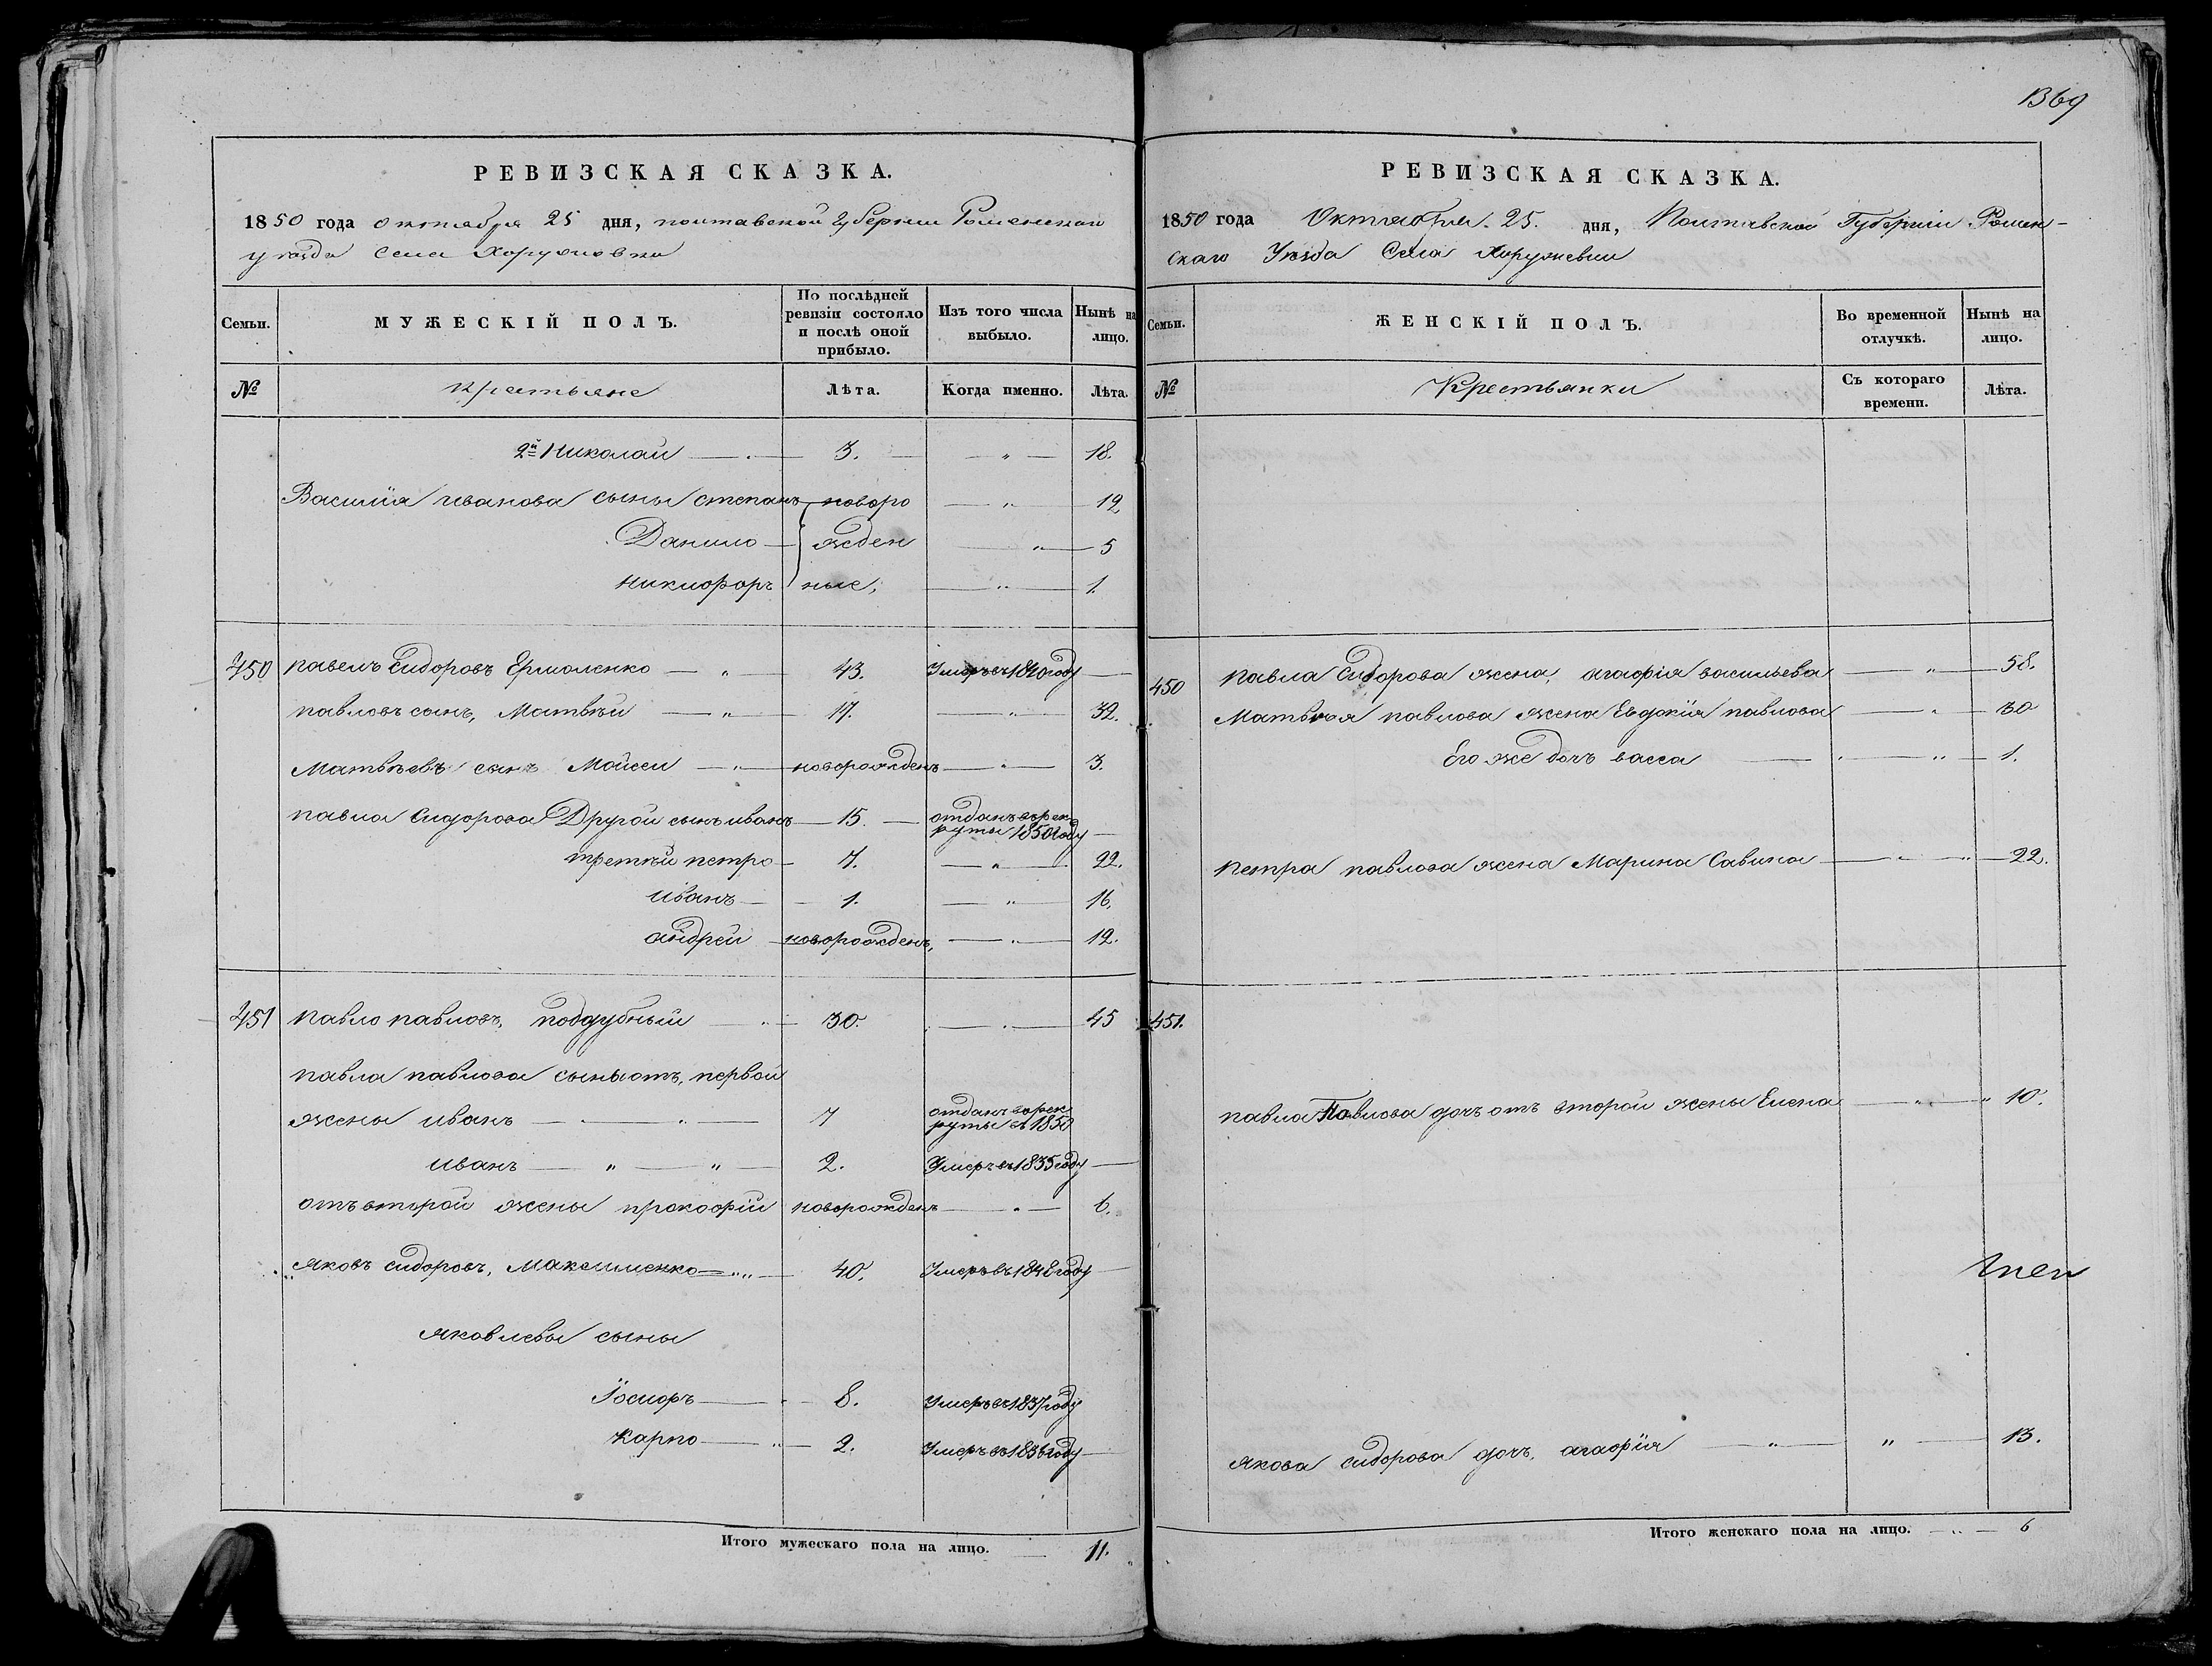 РЕВИЗСКАЯ СКАЗКА.
1850 года октября 25 дня, полтавской губернии Роменскаго
уѣзда села Хоружовки
Семьи.
МУЖЕСКІЙ ПОЛЪ.
По послѣдней ревизіи состояло и послѣ оной прибыло.
Изъ того числа выбыло.
Нынѣ на лицо.
№
крестьяне
Лѣта.
Когда именно.
Лѣта.
2й Николай — 3. — " — 18.
Василія иванова сыны степанъ новоро — " — 12
Данило — жден — " — 5
никифоръ ные, — " — 1.
450 павелъ Сидоровъ Ермоленко — " — 43. Умеръ въ 1840 году —
павловъ сынъ, Матвѣй — " — 17. — " — 32.
Матвѣевъ сынъ Мойсей — " — новорожденъ — " — 3.
павла Сидорова Другой сынъ иванъ — 15. — отданъ въ рек
руты 1850 году —
третий петро — 7. — " — 22.
иванъ — 1. — " — 16.
андрей новорожденъ, — " — 12.
451 павло павловъ, поддубный — 30. — " — 45
павла павлова сыны отъ, первой
жены иванъ — " — 7 отданъ в рек
руты в 1850
иванъ — " — " — 2. Умеръ въ 1835 году —
отъ второй жены прокофій новорожденъ — " — 6.
яковъ сидоровъ, Максименко — " — 40. Умеръ въ 1848 году —
яковлевы сыны
Іосифъ — 8. Умеръ въ 1837 году
Карпо — " — 2. Умеръ въ 1836 году —
Итого мужескаго пола на лицо. — 11.
1369
РЕВИЗСКАЯ СКАЗКА.
1850 года Октября 25. дня, Полтавской Губерніи Ромен-
скаго Уѣзда Села Хоружевки
Семьи.
ЖЕНСКІЙ ПОЛЪ.
Во временной отлучкѣ.
Нынѣ на лицо.
№
Крестьянки
Съ котораго времени.
Лѣта.
450 павла Сидорова жена, агафія васильева — " — 58.
Матвѣя павлова жена Евдокія павлова — " — 30
Его же дочъ васса — " — 1.
петра павлова жена Марина Савина — " — 22.
451.
павла Павлова дочъ отъ второй жены Елена — " — 10.
якова сидорова дочъ, агафія — " — 13.
Итого женскаго пола на лицо. — " — 6